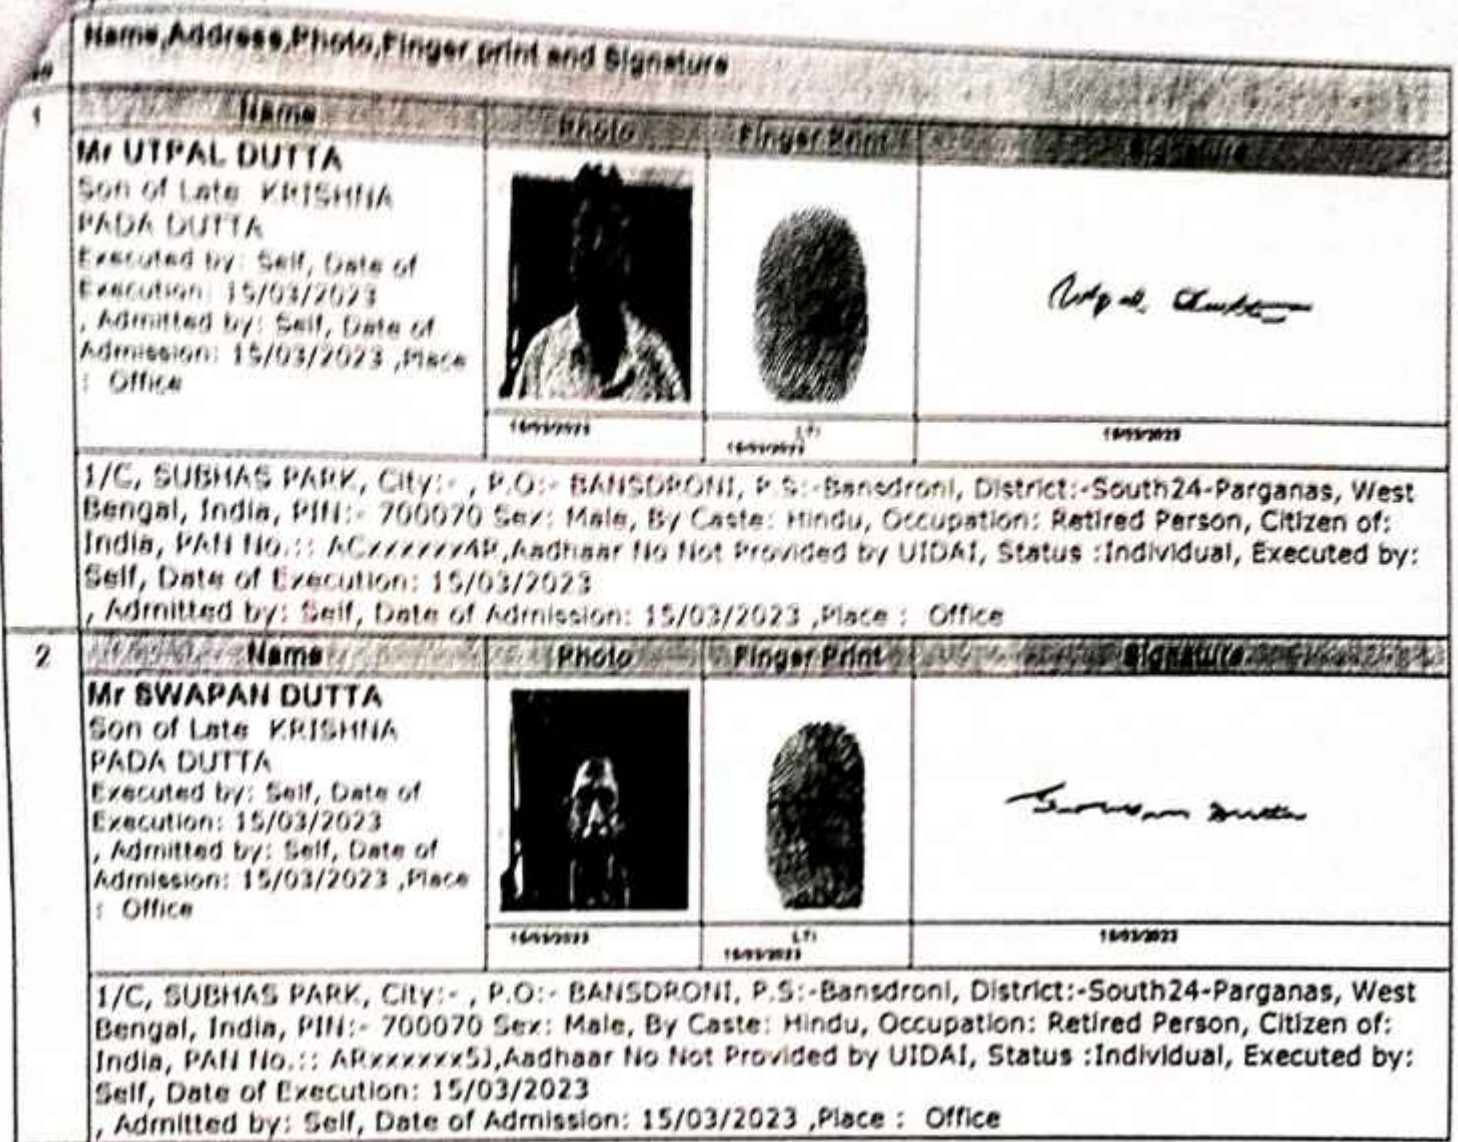 Name,Address,Photo,Finger print and Signature
1
Name Photo Finger Print Signature
Mr UTPAL DUTTA
Son of Late KRISHNA
PADA DUTTA
Executed by: Self, Date of
Execution: 15/03/2023
, Admitted by: Self, Date of
Admission: 15/03/2023 ,Place
: Office
15/03/2023 LTI 15/03/2023
15/03/2023
1/C, SUBHAS PARK, City:- , P.O:- BANSDRONI, P.S:-Bansdroni, District:-South24-Parganas, West
Bengal, India, PIN:- 700070 Sex: Male, By Caste: Hindu, Occupation: Retired Person, Citizen of:
India, PAN No.:: ACxxxxxx4R,Aadhaar No Not Provided by UIDAI, Status :Individual, Executed by:
Self, Date of Execution: 15/03/2023
, Admitted by: Self, Date of Admission: 15/03/2023 ,Place : Office
2 Name Photo Finger Print Signature
Mr SWAPAN DUTTA
Son of Late KRISHNA
PADA DUTTA
Executed by: Self, Date of
Execution: 15/03/2023
, Admitted by: Self, Date of
Admission: 15/03/2023 ,Place
: Office
Swapan Dutta
15/03/2023 LTI 15/03/2023
15/03/2023
1/C, SUBHAS PARK, City:- , P.O:- BANSDRONI, P.S:-Bansdroni, District:-South24-Parganas, West
Bengal, India, PIN:- 700070 Sex: Male, By Caste: Hindu, Occupation: Retired Person, Citizen of:
India, PAN No.:: ARxxxxxx5J,Aadhaar No Not Provided by UIDAI, Status :Individual, Executed by:
Self, Date of Execution: 15/03/2023
, Admitted by: Self, Date of Admission: 15/03/2023 ,Place : Office